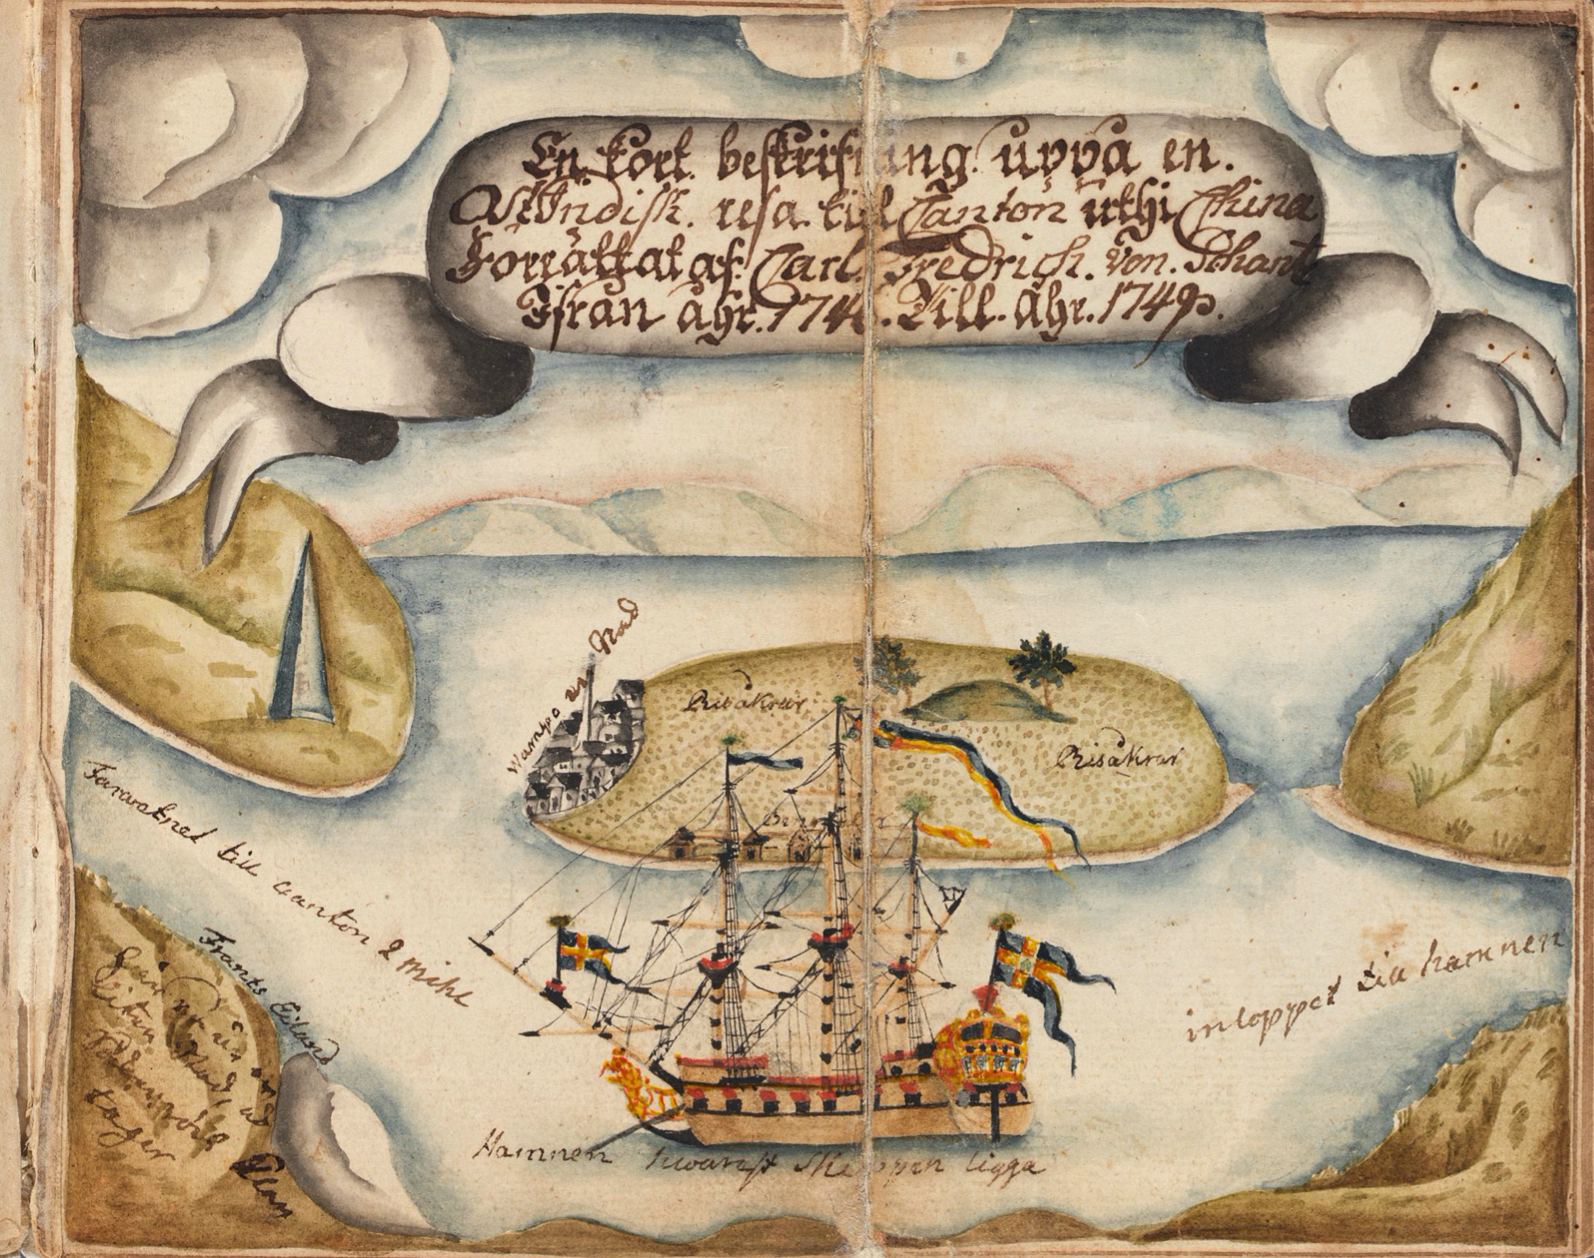 En kort beskrifning uppå en.
Ostindisk. resa. till Canton uthi China
Forrättat af. Carl. Fredrich. von. Schantz
Ifrån åhr. 1746. Till. åhr. 1749.
Wampo en stad
Risåkrar
Risåkrar
Farvatned till canton 2 mihl
Frants Eiland
inloppet till hamnen
Hamnen hwarest Skeppen ligga